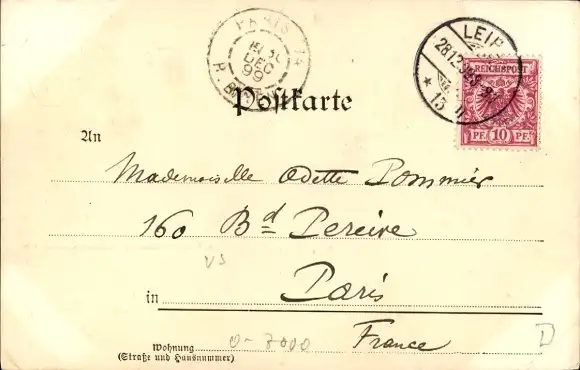 PARIS 14
DEC
99
R.
LEIP
28.12.99
* 13
REICHSPOST
PF. 10 PF.
Postkarte
An
Mademoiselle Odette Pommier
160 Bd Pereire
VS
in Paris
France
Wohnung
(Straße und Hausnummer)
0-7000
D